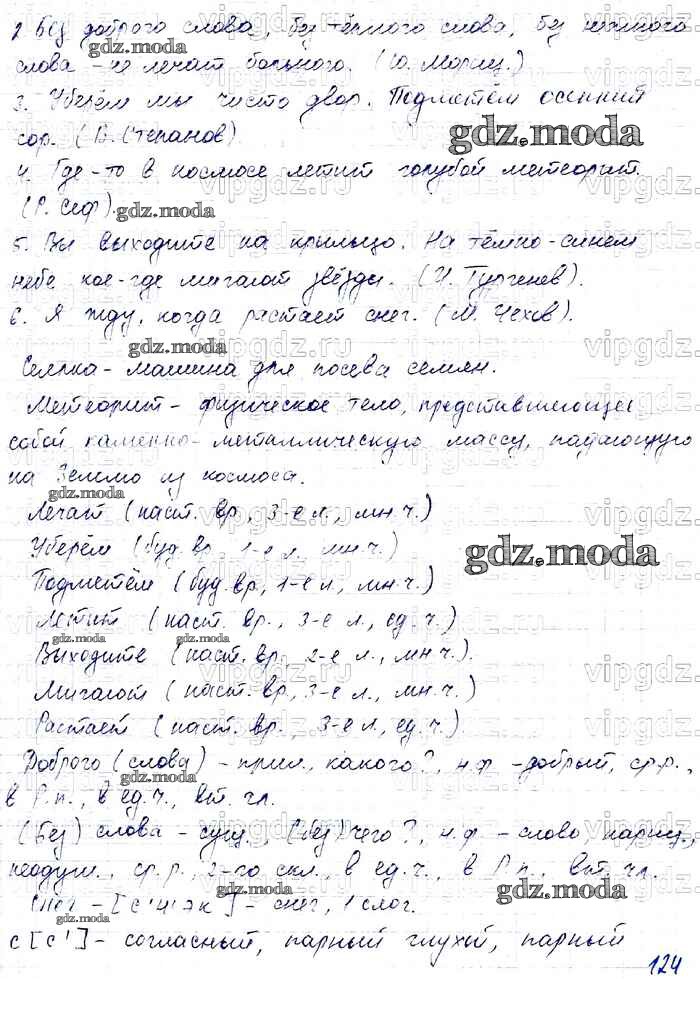 2. Без доброго слова, без тёплого слова, без нежного
слова – не лечат больного. (Ю. Мориц.)
3. Уберём мы чисто двор. Подметём осенний
сор. (В. Степанов)
4. Где-то в космосе летит голубой метеорит.
(Р. Сеф).
5. Вы выходите на крыльцо. На тёмно-синем
небе кое-где мигают звёзды. (И. Тургенев).
6. Я жду, когда растает снег. (М. Чехов).
Сеялка – машина для посева семян.
Метеорит – физическое тело, представляющее
собой каменно-металлическую массу, падающую
на Землю из космоса.
Лечат (наст. вр, 3-е л., мн.ч.)
Уберём (буд. вр, 1-е л., мн.ч.)
Подметём (буд. вр, 1-е л., мн.ч.)
Летит (наст. вр., 3-е л., ед. ч.)
Выходите (наст. вр, 2-е л., мн.ч.).
Мигают (наст. вр, 3-е л., мн.ч.)
Растает (наст. вр., 3-е л., ед. ч.)
Доброго (слова) – прил., какого?, н.ф – добрый, ср.р.,
в Р.п., в ед. ч., вт. чл.
(Без) слова – сущ., (без) чего?, н.ф – слово, нариц.,
неодуш., ср.р., 2-го скл., в ед. ч., в Р.п., вт. чл.
Снег – [с'н'эк] – снег, 1 слог.
с [с'] – согласный, парный глухой, парный
124
gdz.moda
gdz.moda
gdz.moda
gdz.moda
gdz.moda
gdz.moda
gdz.moda
gdz.moda
gdz.moda
gdz.moda
gdz.moda
vipgdz.ru